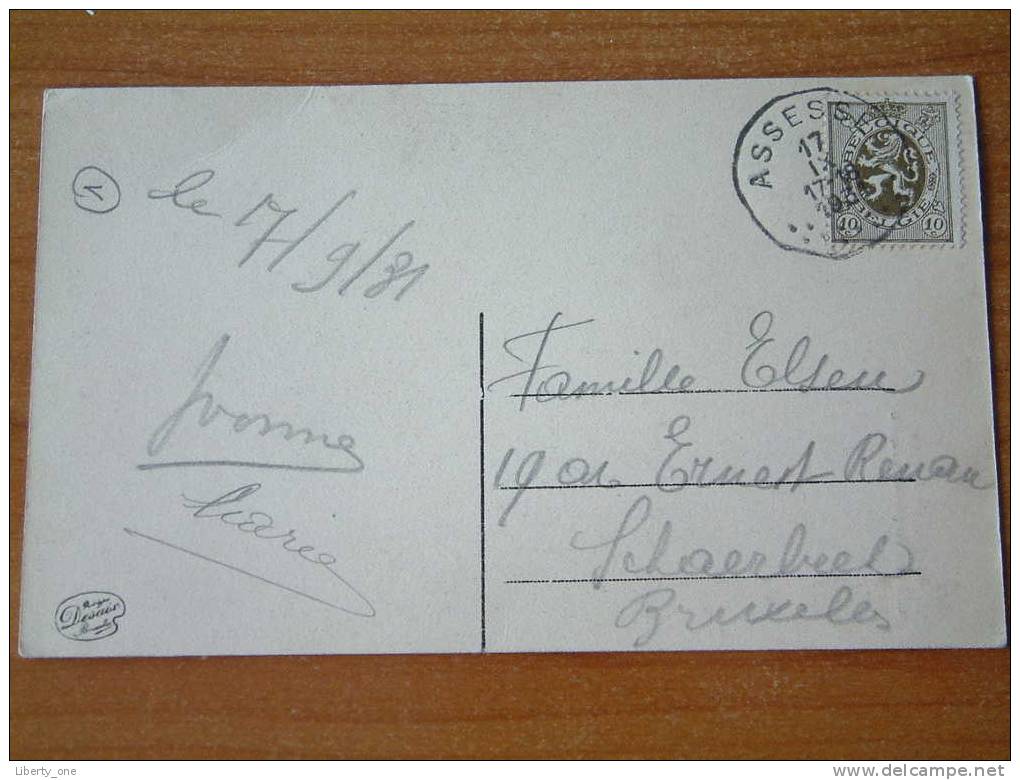 1
le 17/9/31
Yvonne
Marie
ASSESSE
17
IX
17
1931
BELGIQUE
BELGIE
10 10
Famille Elsen
19 av Ernest Renan
Schaerbeek
Bruxelles
Desaix
Liberty_one
www.delcampe.net